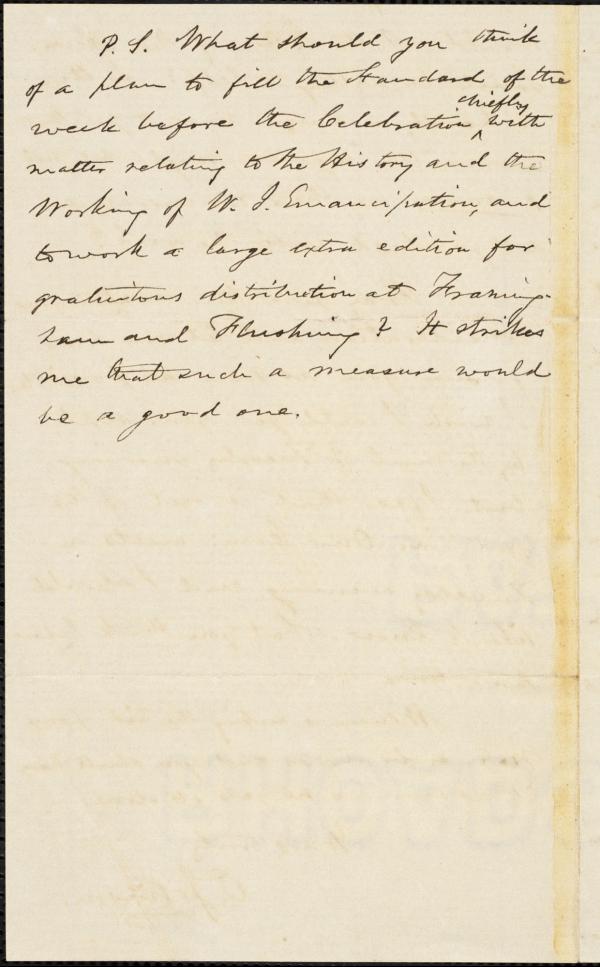 P. S. What should you think
of a plan to fill the Standard of the
week before the Celebration chiefly with
matter relating to the History and the
Working of W. I. Emancipation, and
to work a large extra edition for
gratuitous distribution at Framing-
ham and Flushing? It strikes
me that such a measure would
be a good one.